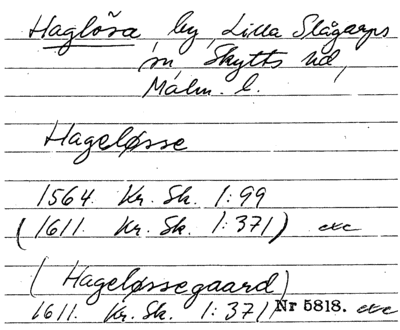 Haglösa by, Lilla Slågarps
sn, Skytts hd,
Malm. l.
Hageløsse
1564. Kr. Sk. 1:99
(1611. Kr. Sk. 1:371) etc
(Hageløssegaard)
1611. Kr. Sk. 1:371 Nr 5818. etc